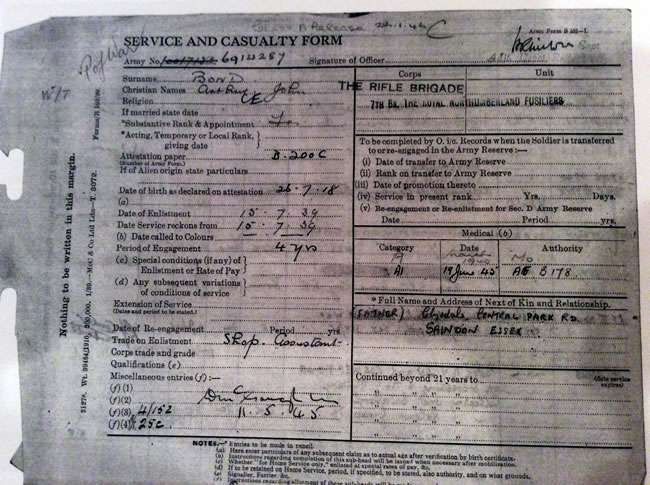 Class A Release
Army Form B 102—I.
SERVICE AND CASUALTY FORM
P of War
Army No. 6914287
Signature of Officer
W/T
Surname BOND
Christian Names John
Religion CE
If married state date
*Substantive Rank & Appointment
*Acting, Temporary or Local Rank, giving date
Attestation paper B. 200C
(Number of Army Form.)
If of Alien origin state particulars
Date of birth as declared on attestation 26 . 7 . 18
(a)
Date of Enlistment 15 . 7 . 39
Date Service reckons from 15 . 7 . 39
(b) Date called to Colours
Period of Engagement 4 yrs
(c) Special conditions (if any) of Enlistment or Rate of Pay
(d) Any subsequent variations of conditions of service
Extension of Service
(Dates and period to be stated.)
Date of Re-engagement Period yrs
Trade on Enlistment Shop Assistant
Corps trade and grade
Qualifications (e)
Miscellaneous entries (f) :—
(f) (1)
(f) (2)
(f) (3) 4/152 11. 5 45
(f) (4) 25c
Nothing to be written in this margin.
Corps
Unit
THE RIFLE BRIGADE
7TH Bn. THE ROYAL NORTHUMBERLAND FUSILIERS
To be completed by O. i/c. Records when the Soldier is transferred to or re-engaged in the Army Reserve :—
(i) Date of transfer to Army Reserve
(ii) Rank on transfer to Army Reserve
(iii) Date of promotion thereto
(iv) Service in present rank Yrs. Days.
(v) Re-engagement or Re-enlistment for Sec. D Army Reserve
Date Period yrs.
Medical (b)
Category
Date
Authority
A1
19 June 45
B 178
*Full Name and Address of Next of Kin and Relationship.
(FATHER) CENTRAL PARK RD
ESSEX
Continued beyond 21 years to
(date service expires)
NOTES.—* Entries to be made in pencil.
(a) Here enter particulars of any subsequent claim as to actual age after verification by birth certificate.
(b) Instructions regarding completion of this sub-head will be issued when necessary after mobilization.
(c) Whether "for Home Service only," enlisted at special rates of pay, &c.
(d) If to be retained on Home Service, period, if specified, to be stated, also authority, and on what grounds.
(e) Signaller, Farrier, &c.